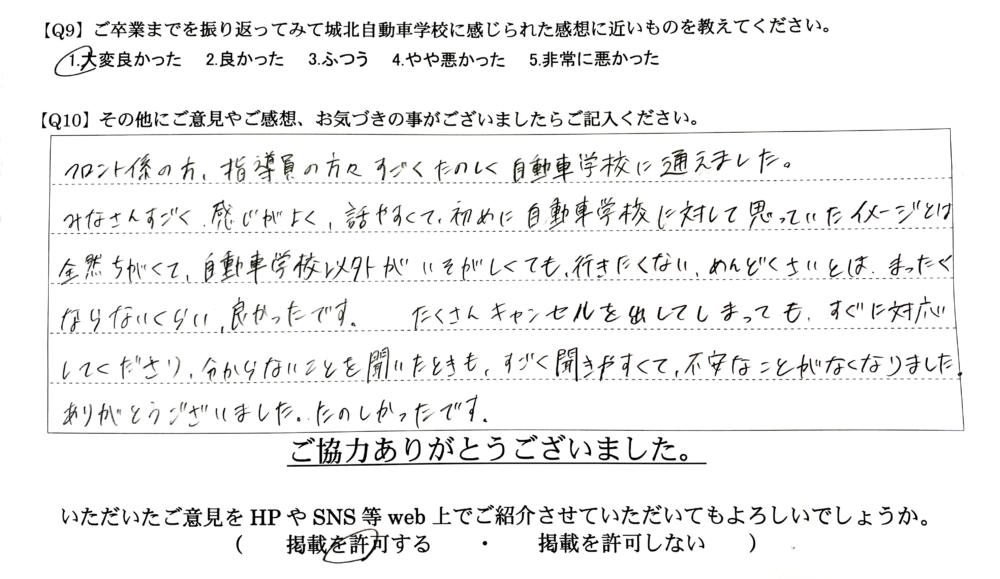 【Q9】ご卒業までを振り返ってみて城北自動車学校に感じられた感想に近いものを教えてください。
1.大変良かった 2.良かった 3.ふつう 4.やや悪かった 5.非常に悪かった
【Q10】その他にご意見やご感想、お気づきの事がございましたらご記入ください。
フロント係の方、指導員の方々すごくたのしく自動車学校に通えました。
みなさんすごく感じがよく、話やすくて、初めに自動車学校に対して思っていたイメージとは
全然ちがくて、自動車学校以外がいそがしくても、行きたくない、めんどくさいとは、まったく
ならないくらい、良かったです。 たくさんキャンセルを出してしまっても、すぐに対応
してくださり、分からないことを聞いたときも、すごく聞きやすくて、不安なことがなくなりました。
ありがとうございました。たのしかったです。
ご協力ありがとうございました。
いただいたご意見をHPやSNS等web上でご紹介させていただいてもよろしいでしょうか。
( 掲載を許可する ・ 掲載を許可しない )